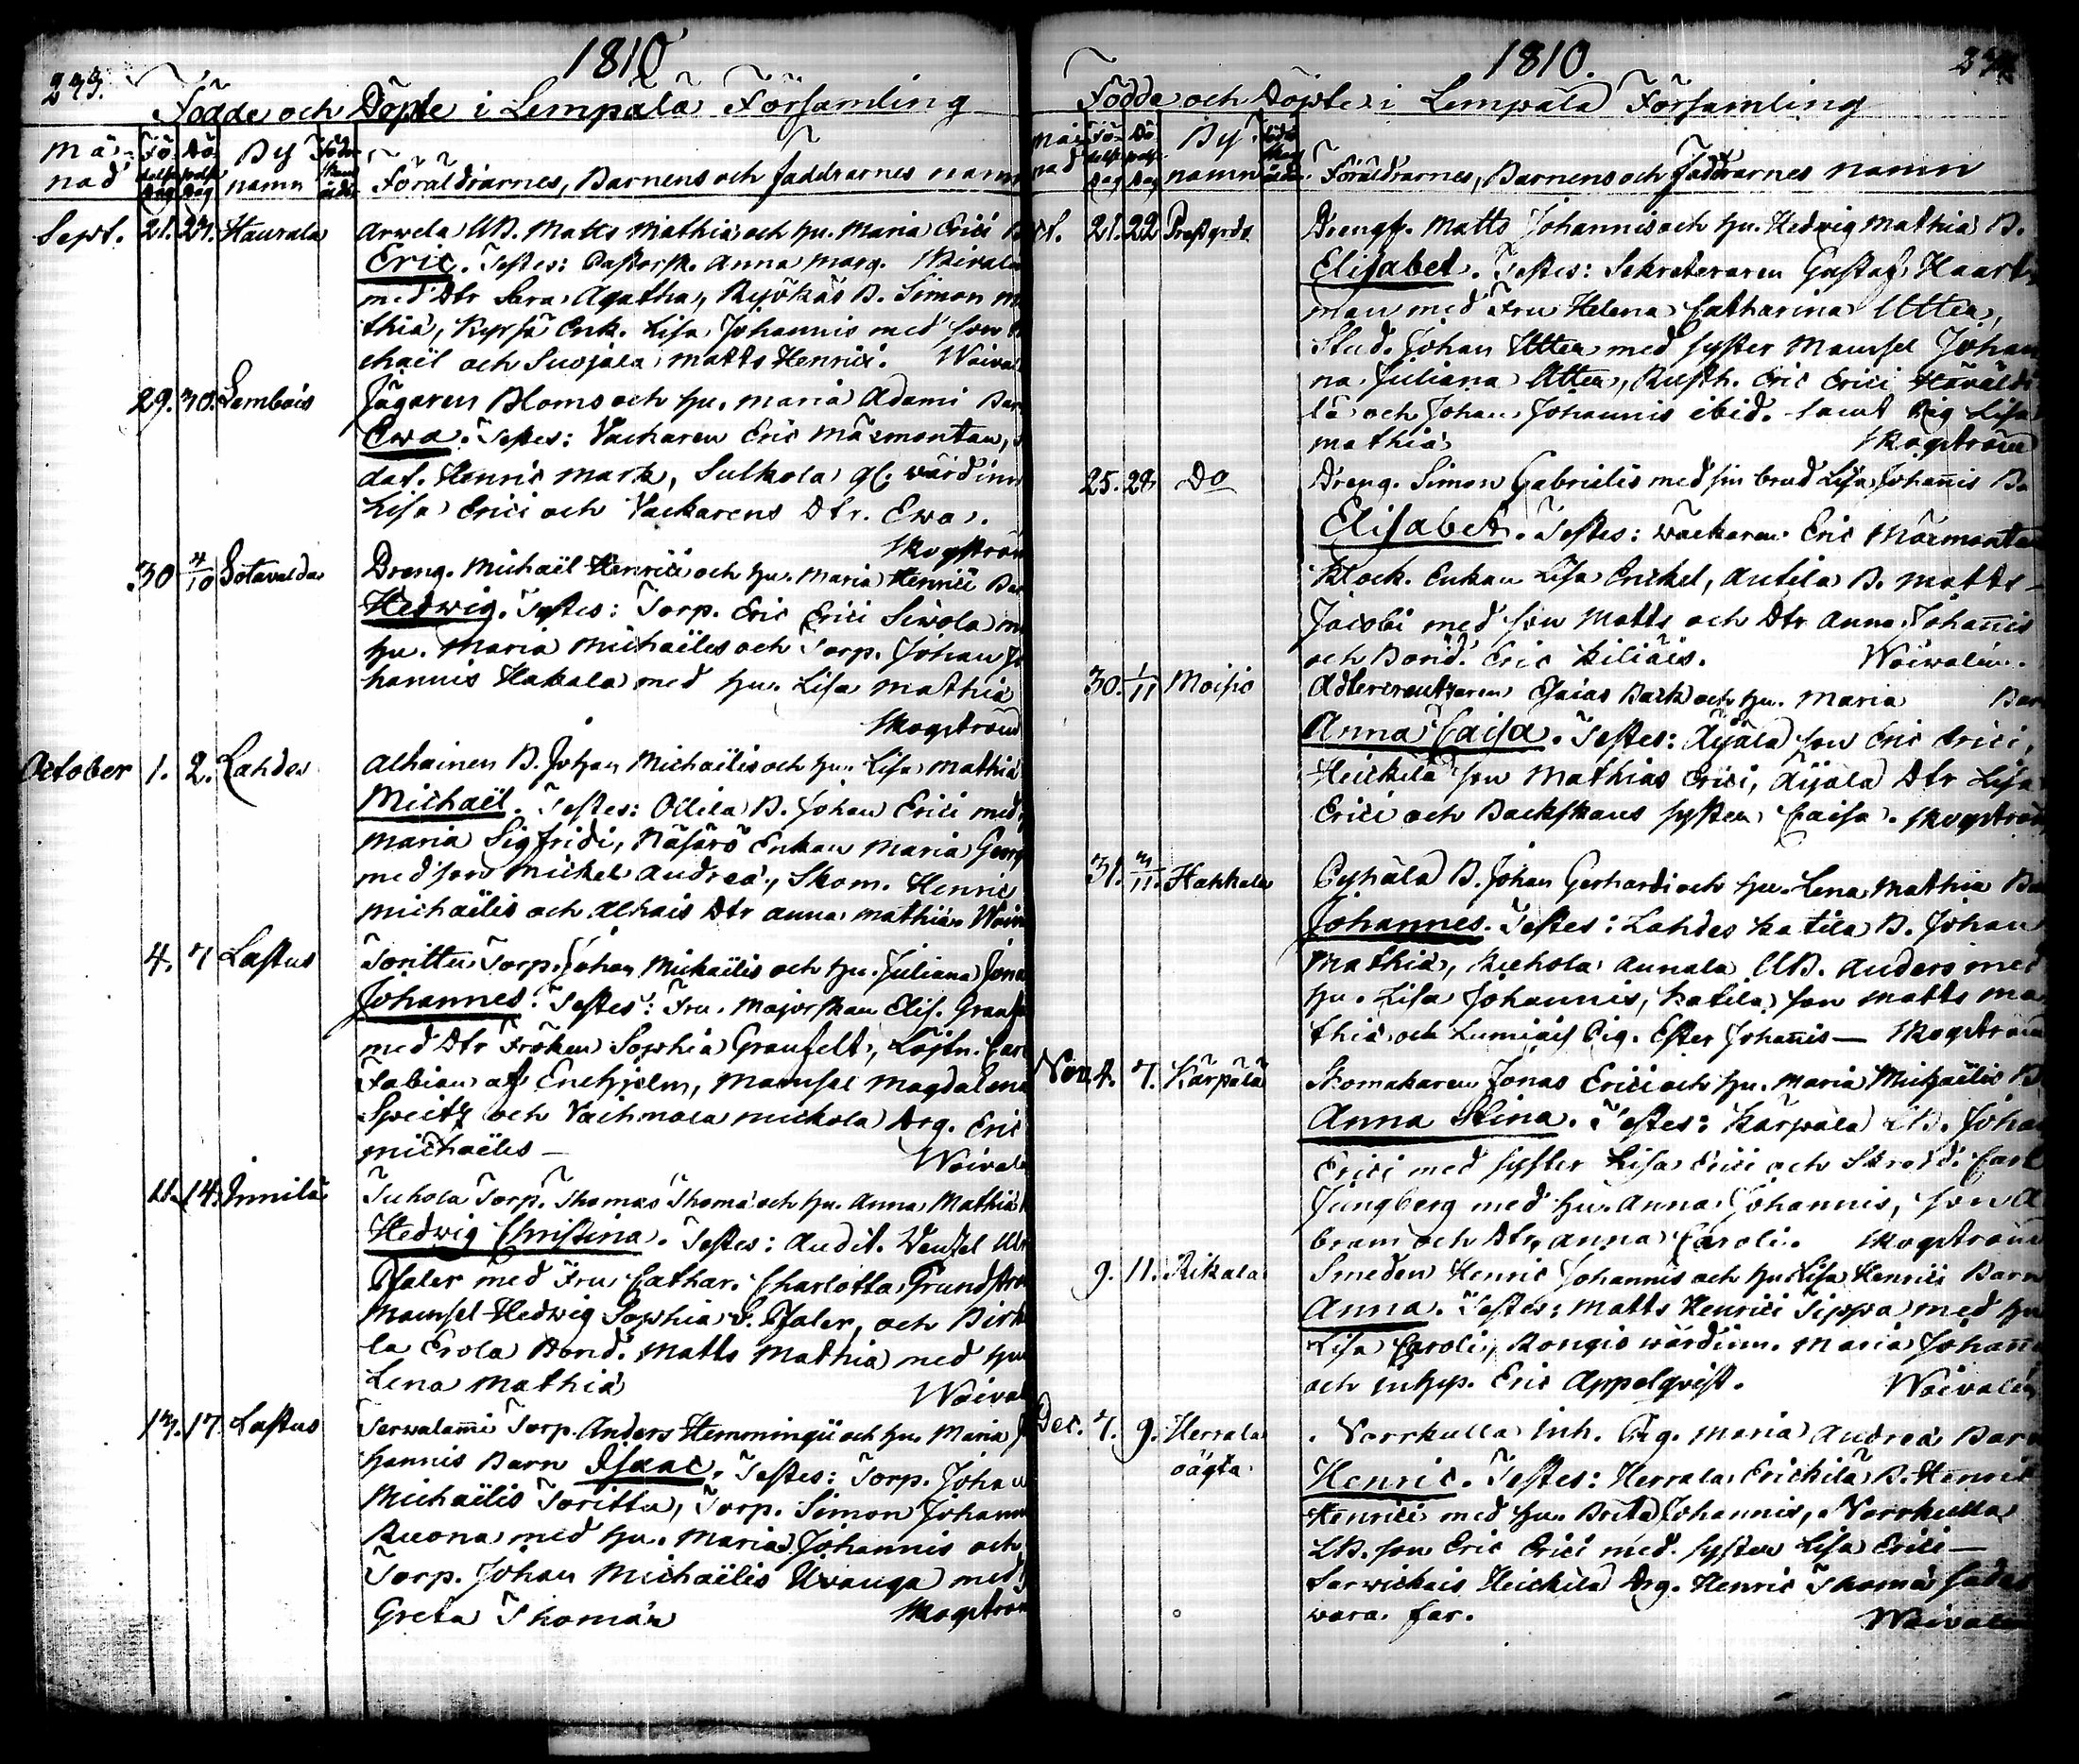 1810
243.
Födde och Döpte i Lempälä Församling
Må-nad Fö-delse Dag Dö-pelse Dag By namn Föräldrarnes, Barnens och Faddrarnes namn
Sept. 21. 24. Haurala Arvela UB. Matts Mathiæ och hu. Maria Erici
Eric. Testes: Pastorsk. Anna Marg. Waivalen
med Dtr Sara Agatha, Ryökäs B. Simon Ma
thiæ, Kyrsä Enk. Lisa Johannis med son
chaël och Suojala Matts Henrici. Waival
29. 30. Lembois Jägaren Bloms och hu. Maria Adami Bar
Ewa. Testes: Vackaren Eric Märmontan,
dat. Henric Mark, Sulkola gl. wärdinn
Lisa Erici och Vackarens Dtr. Ewa.
Skogström
30 4/10 Sotavalda Dreng. Michaël Henrici och hu. Maria Henrici Bar
Hedwig. Testes: Torp. Eric Erici Siwola m
hu. Maria Michaëlis och Torp. Johan Jo
hannis Hakala med hu. Lisa Mathiæ
Skogström
October 1. 2. Lahdes Alhainen B. Johan Michaëlis och hu. Lisa Mathiæ
Michaël. Testes: Ollila B. Johan Erici med
Maria Sigfridi, Näsärö Enkan Maria Georg
med son Mickel Andreæ, Skom. Henric
Michaëlis och Alhais Dtr Anna Mathiæ Waiva
4. 7 Lastus Torittu Torp. Johan Michaëlis och hu. Juliana Jona
Johannes. Testes: Fru Majorskan Elis. Granfe
med Dtr Fröken Sophia Granfelt, Löjtn. Carl
Fabian af Enehjelm, Mamsel Magdalena
Speitz och Vaihmala Mickola Drg. Eric
Michaëlis — Waivale
11. 14. Innilä Tuhola Torp. Thomas Thomæ och hu. Anna Mathiæ
Hedwig Christina. Testes: Audit. Wentzel
Thaler med Fru Cathar. Charlotta Grundströ
Mamsel Hedwig Sophia Thaler, och Birk
la Erola Bond. Matts Mathiæ med hu
Lena Mathiæ Waival
13. 17. Lastus Serwalammi Torp. Anders Hemmingii och hu. Maria J
hannis Barn Isaac. Testes: Torp. Johan
Michaëlis Torittu, Torp. Simon Johann
Ruona med hu. Maria Johannis och
Torp. Johan Michaëlis Uvanga med
Greta Thomæ Skogström
1810.
244.
Födde och Döpte i Lempälä Församling
Må-nad Fö-delse Dag Dö-pelse Dag By namn Föräldrarnes, Barnens och Faddrarnes namn
ct. 21. 22 Prestgrds Drengk. Matts Johannis och hu. Hedwig Mathiæ B.
Elisabet. Testes: Sekreteraren Gustaf Haart
man med Fru Helena Catharina Utter,
Stud. Johan Utter med syster Mamsel Johan
na Juliana Utter, Rusth. Eric Erici Häväldi
lä och Johan Johannis ibid. samt Pig Lisa
Mathiæ Skogström
25. 28 Do Dreng. Simon Gabrielis med sin brud Lisa Johannis Ba
Elisabet. Testes: Wäckaren Eric Märmontan
Klock. Enkan Lisa Erickel, Antila B. Matts
Jacobi med son Matts och Dtr Anna Johannis
och Bond. Eric Kiliäis. Waivalen.
30. 1/11 Moisio Adlercreutzaren Esaias Back och hu. Maria Bar
Anna Caisa. Testes: Äijälä son Eric Erici,
Heickilä son Mathias Erici, Äijälä Dtr Lisa
Erici och Backskans syster Caisa. Skogström
31. 3/11. Hakkala Cyhälä B. Johan Gerhardi och hu. Lena Mathiæ Ba
Johannes. Testes: Lahdes Katila B. Johan
Mathiæ, Kuehola Annala UB. Anders med
hu. Lisa Johannis, Katila son Matts Ma
thiæ och Lumiais Pig. Ester Johannis — Skogström
Nov. 4. 7. Kärpälä Skomakaren Jonas Erici och hu. Maria Michaëlis B
Anna Stina. Testes: Kärpälä UB. Joha
Erici med syster Lisa Erici och Skredd. Carl
Jungberg med hu. Anna Johannis, son A
bram och Dtr, Anna Caroli. Skogström
9. 11. Rikala Smeden Henric Johannis och hu. Lisa Henrici Barn
Anna. Testes: Matts Henrici Sippa med hu
Lisa Caroli, Rongis wärdinn. Maria Johann
och inhys. Eric Appelqvist. Waivalen
Dec. 7. 9. Herrala Norrkulla Inh. Pig. Maria Andreæ Barn
oägta Henric. Testes: Herrala Erickilä B. Henric
Henrici med hu. Brita Johannis, Norrkulla
LB. son Eric Erici med syster Lisa Erici —
Sarwickais Heickilä Drg. Henric Thomæ sades
wara far. Waivalen